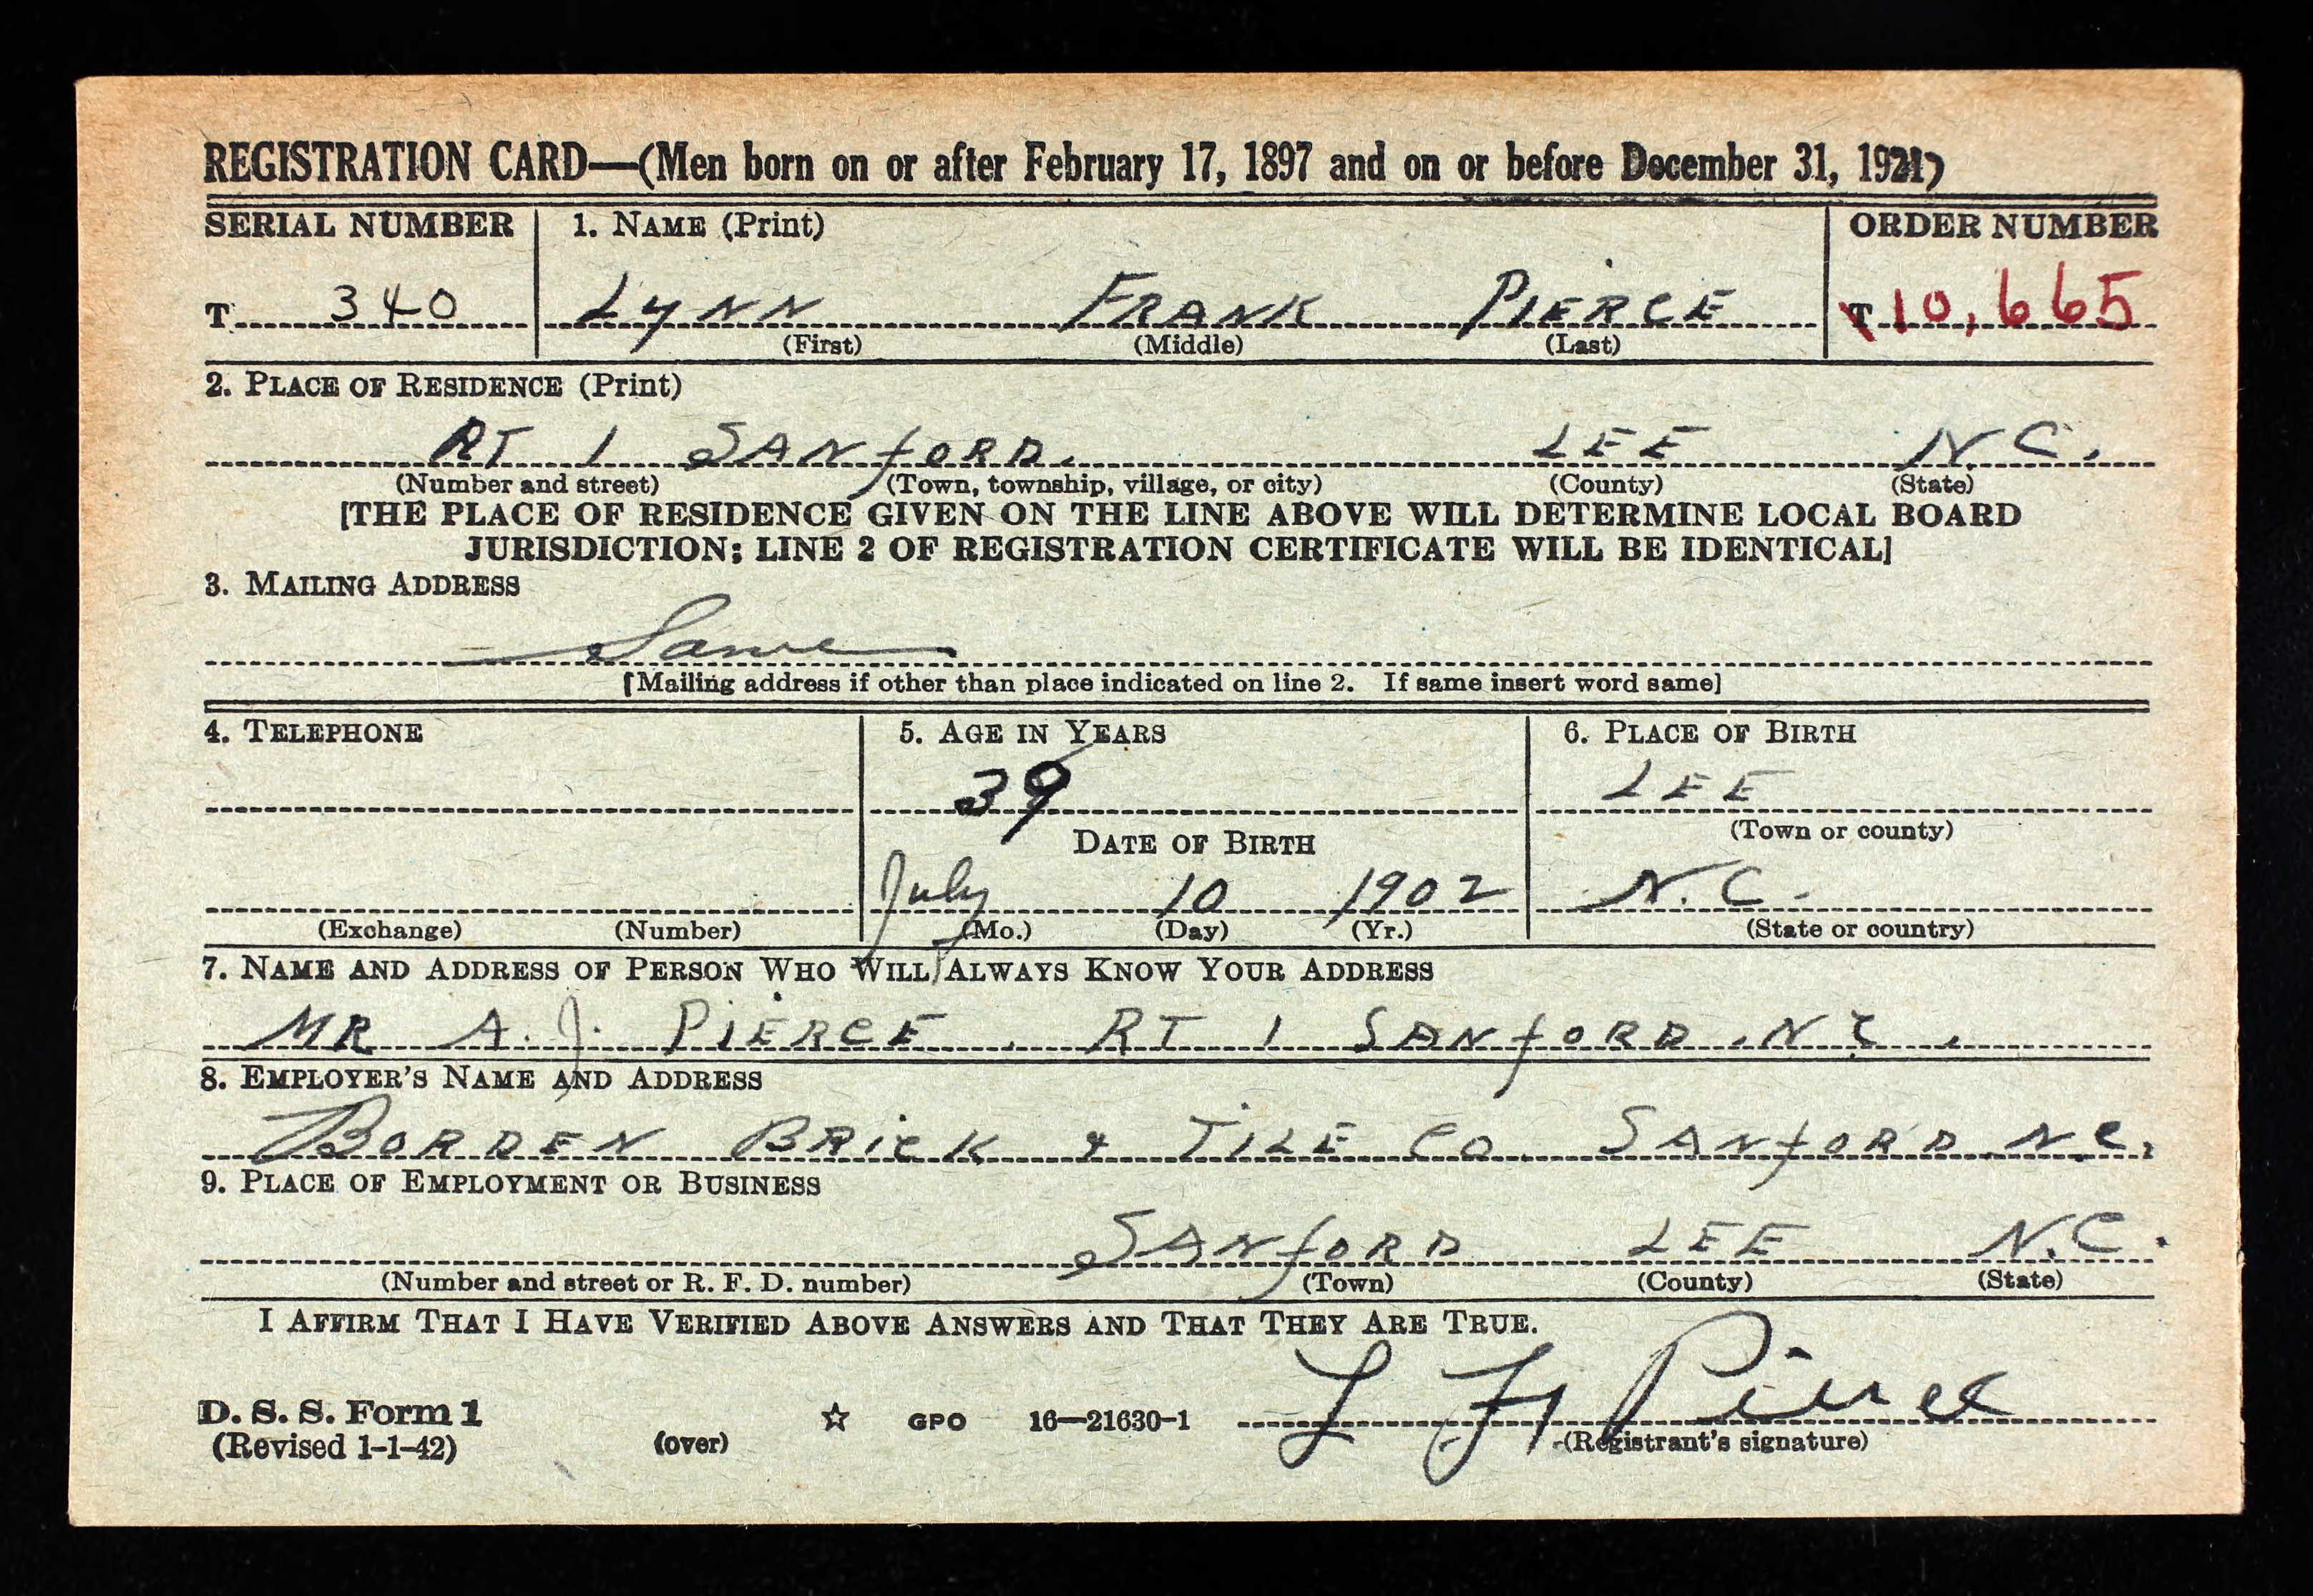 REGISTRATION CARD—(Men born on or after February 17, 1897 and on or before December 31, 1921)
SERIAL NUMBER 1. NAME (Print) ORDER NUMBER
T 340 LYNN FRANK PIERCE T 10,665
(First) (Middle) (Last)
2. PLACE OF RESIDENCE (Print)
RT 1 SANfORD, LEE N C.
(Number and street) (Town, township, village, or city) (County) (State)
[THE PLACE OF RESIDENCE GIVEN ON THE LINE ABOVE WILL DETERMINE LOCAL BOARD
JURISDICTION; LINE 2 OF REGISTRATION CERTIFICATE WILL BE IDENTICAL]
3. MAILING ADDRESS
Same
[Mailing address if other than place indicated on line 2. If same insert word same]
4. TELEPHONE 5. AGE IN YEARS 6. PLACE OF BIRTH
39 LEE
DATE OF BIRTH (Town or county)
July 10 1902 N.C.
(Exchange) (Number) (Mo.) (Day) (Yr.) (State or country)
7. NAME AND ADDRESS OF PERSON WHO WILL ALWAYS KNOW YOUR ADDRESS
MR A. J. PIERCE. RT 1 SANfORD, N C.
8. EMPLOYER'S NAME AND ADDRESS
BORDEN BRICK & TILE CO. SANfORD N.C.
9. PLACE OF EMPLOYMENT OR BUSINESS
SANfORD LEE N.C.
(Number and street or R. F. D. number) (Town) (County) (State)
I AFFIRM THAT I HAVE VERIFIED ABOVE ANSWERS AND THAT THEY ARE TRUE.
L F Pierce
D. S. S. Form 1 ☆ GPO 16—21630-1
(Revised 1-1-42) (over) (Registrant's signature)